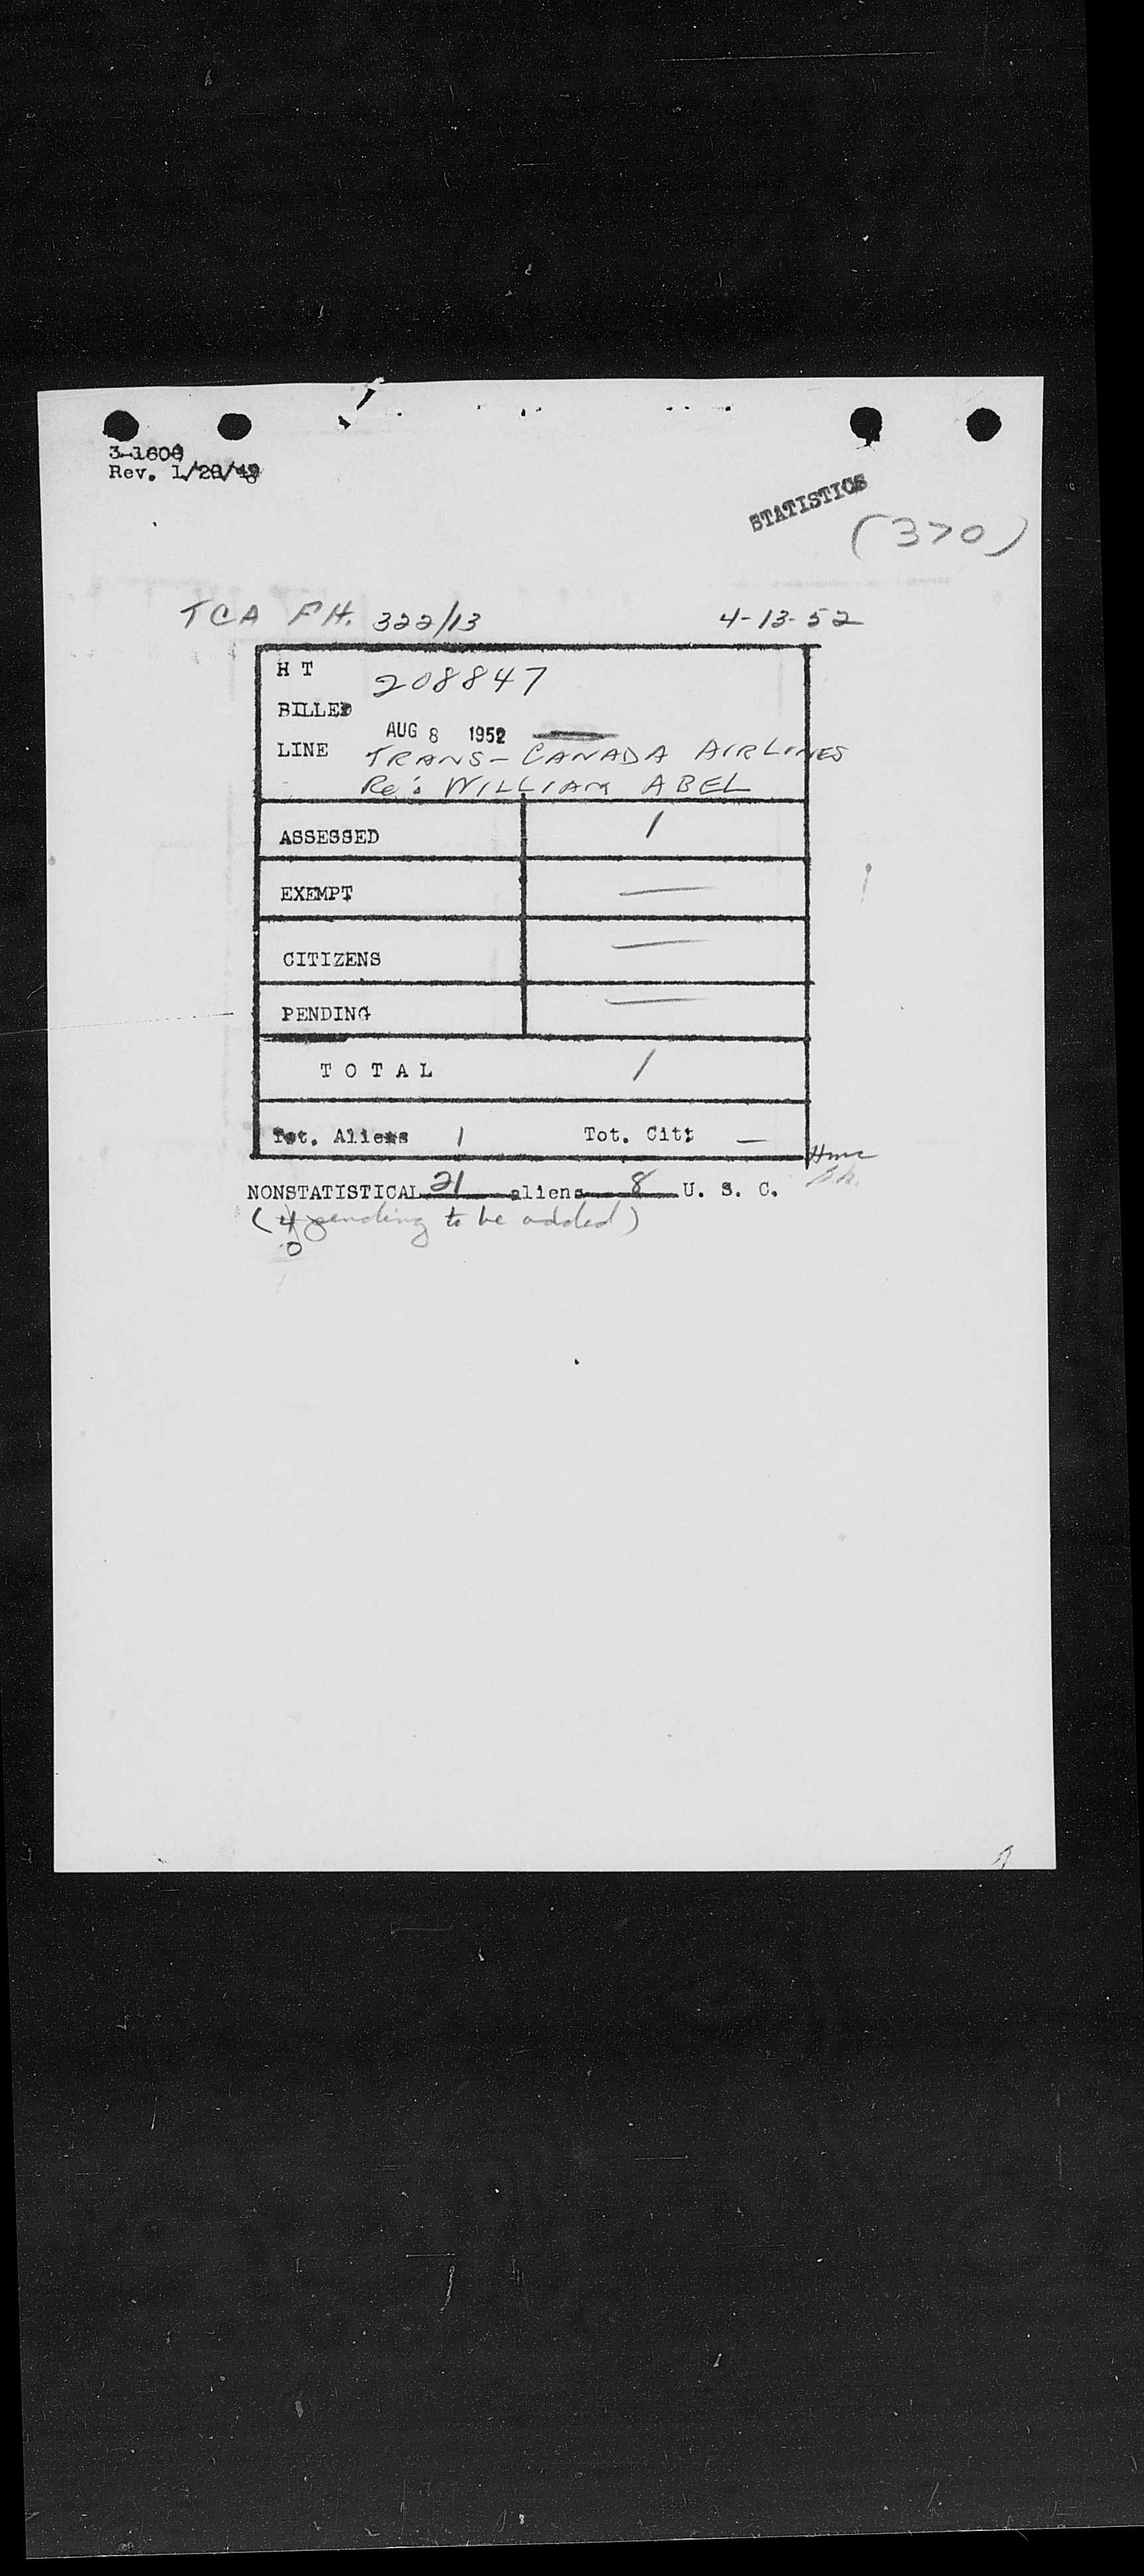 3-1608
Rev. 1/28/49
STATISTICS
(370)
TCA Flt. 322/13 4-13-52
H T 208847
BILLED
AUG 8 1952
LINE TRANS-CANADA AIRLINES
Re: WILLIAM ABEL
ASSESSED 1
EXEMPT —
CITIZENS —
PENDING —
T O T A L 1
Tot. Aliens 1 Tot. Cit: —
NONSTATISTICAL 21 aliens 8 U. S. C.
(4 pending to be added)
0